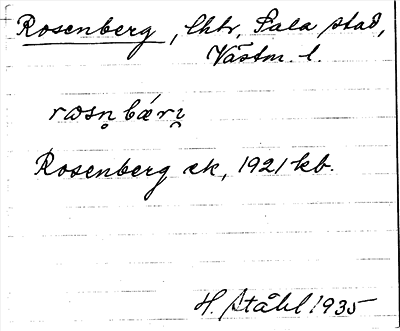 Rosenberg, lht, Sala stad,
Västm. l.
rωsn̥ bǽri̯
Rosenberg ek, 1921 kb.
H. Ståhl 1935